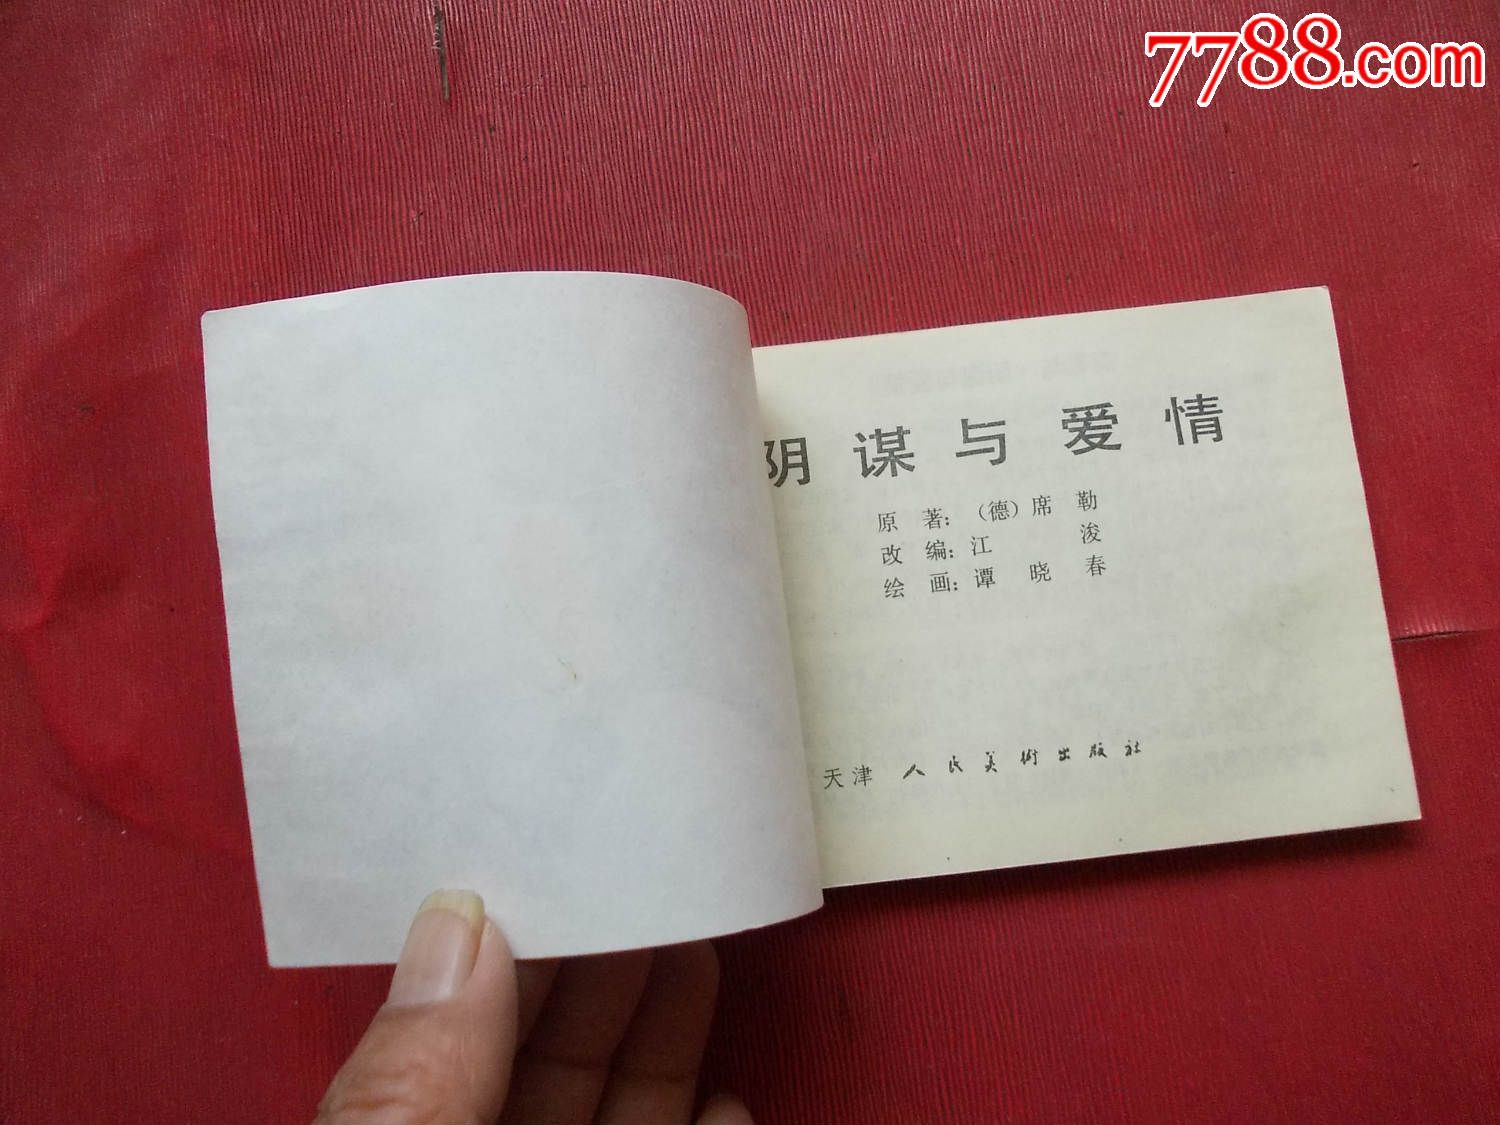 7788.com
阴谋与爱情
原著：（德）席勒
改编：江浚
绘画：谭晓春
天津人民美術出版社